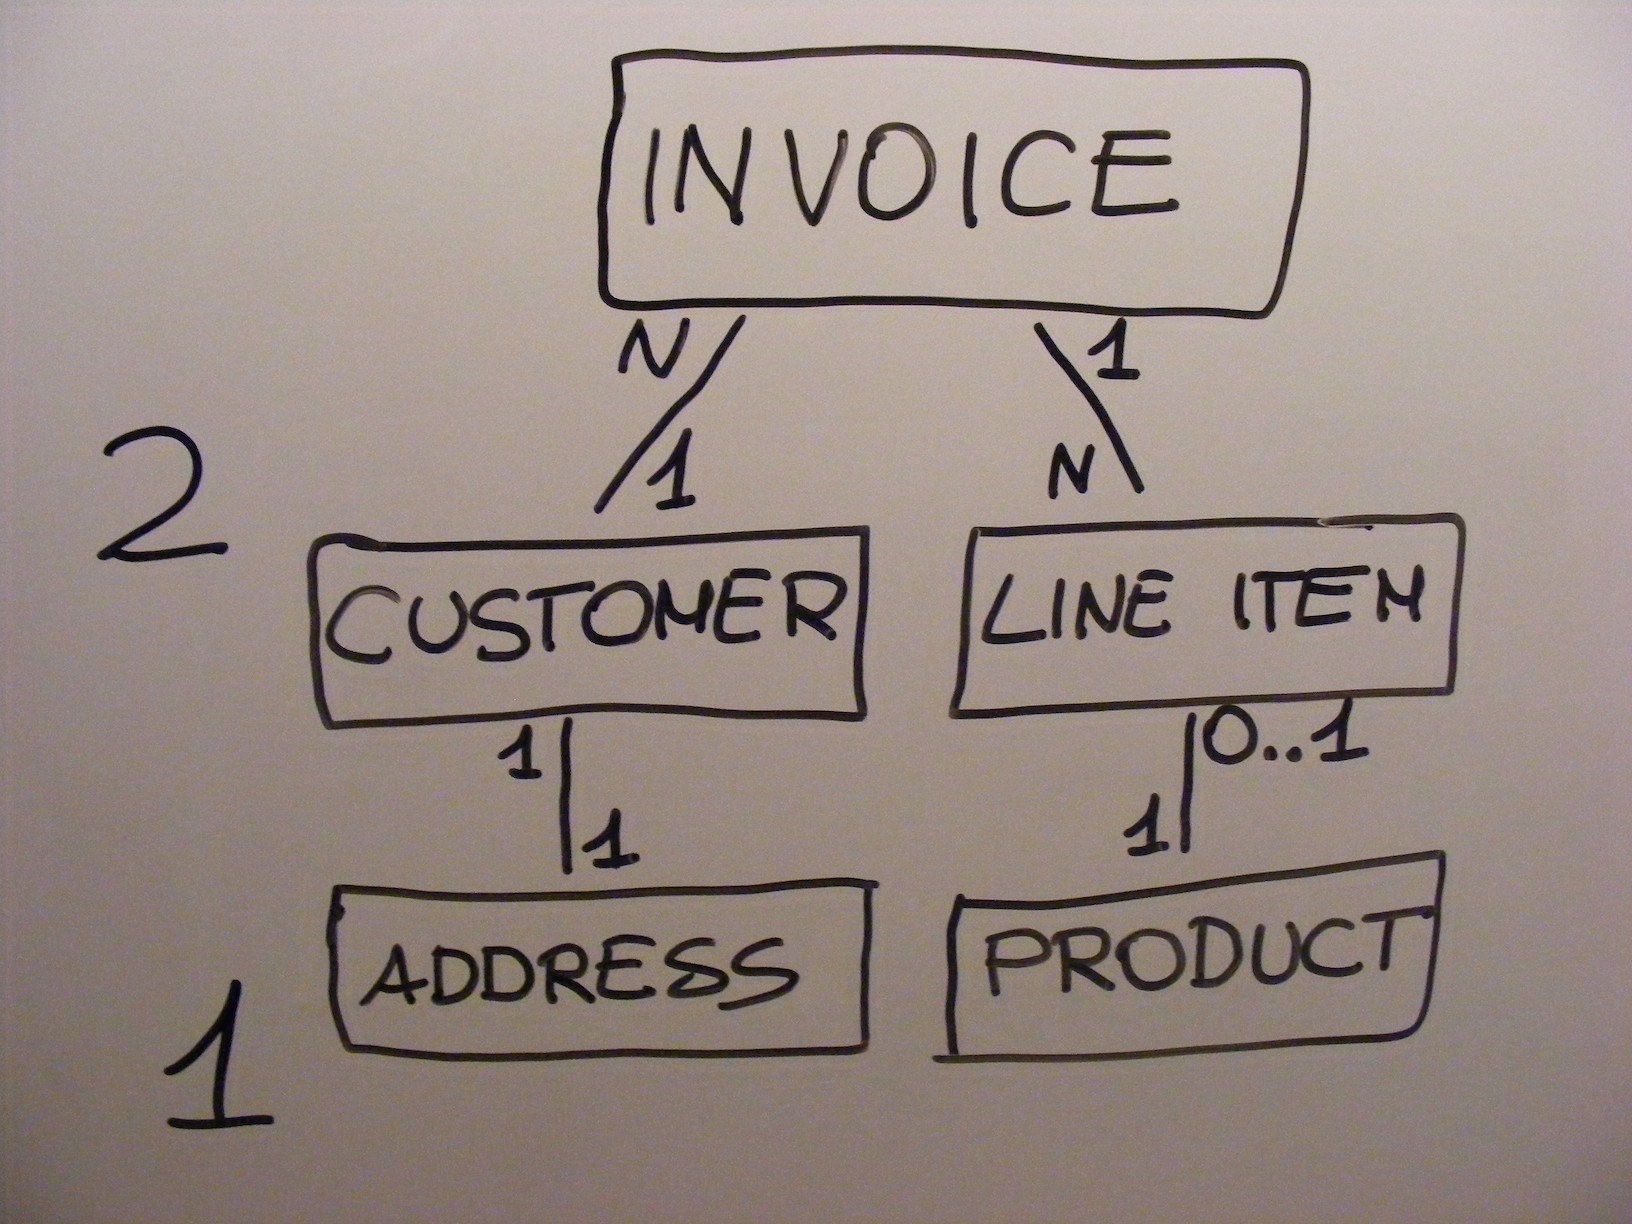 INVOICE
N 1
2 1 N
CUSTOMER LINE ITEM
1 0..1
1 1
ADDRESS PRODUCT
1